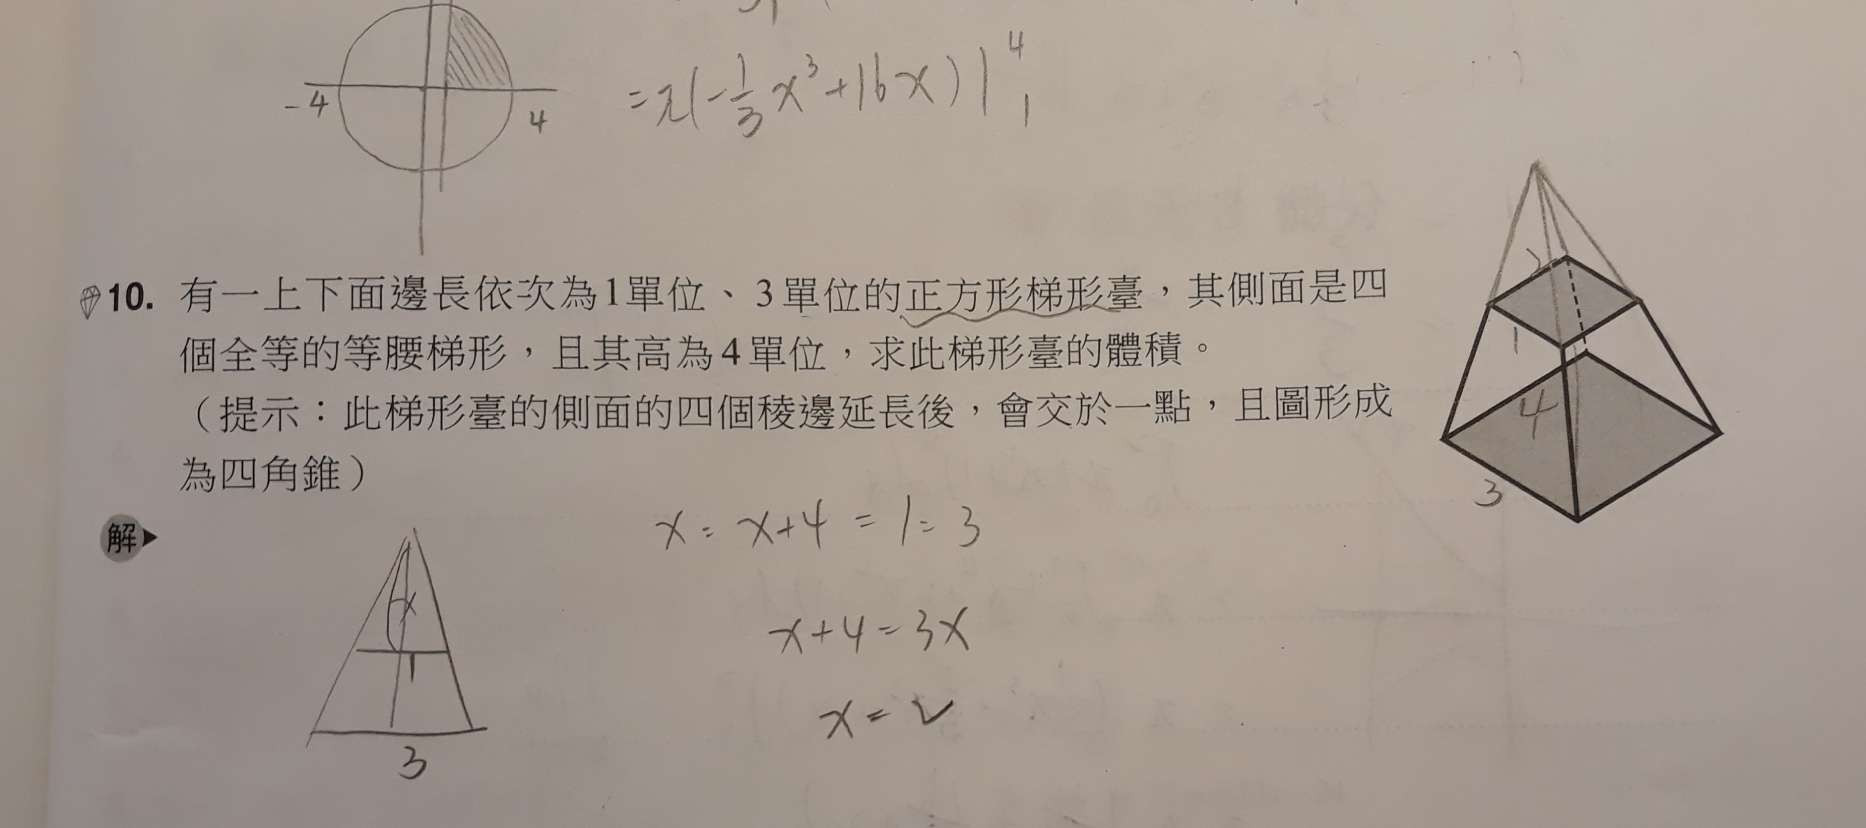 -4
4
=π(-1/3 x³+16x)|⁴₁
10. 有一上下面邊長依次為1單位、3單位的正方形梯形臺,其側面是四
個全等的等腰梯形,且其高為4單位,求此梯形臺的體積。
(提示:此梯形臺的側面的四個稜邊延長後,會交於一點,且圖形成
為四角錐)
2
1
4
3
解
x
1
3
x:x+4=1:3
x+4=3x
x=2